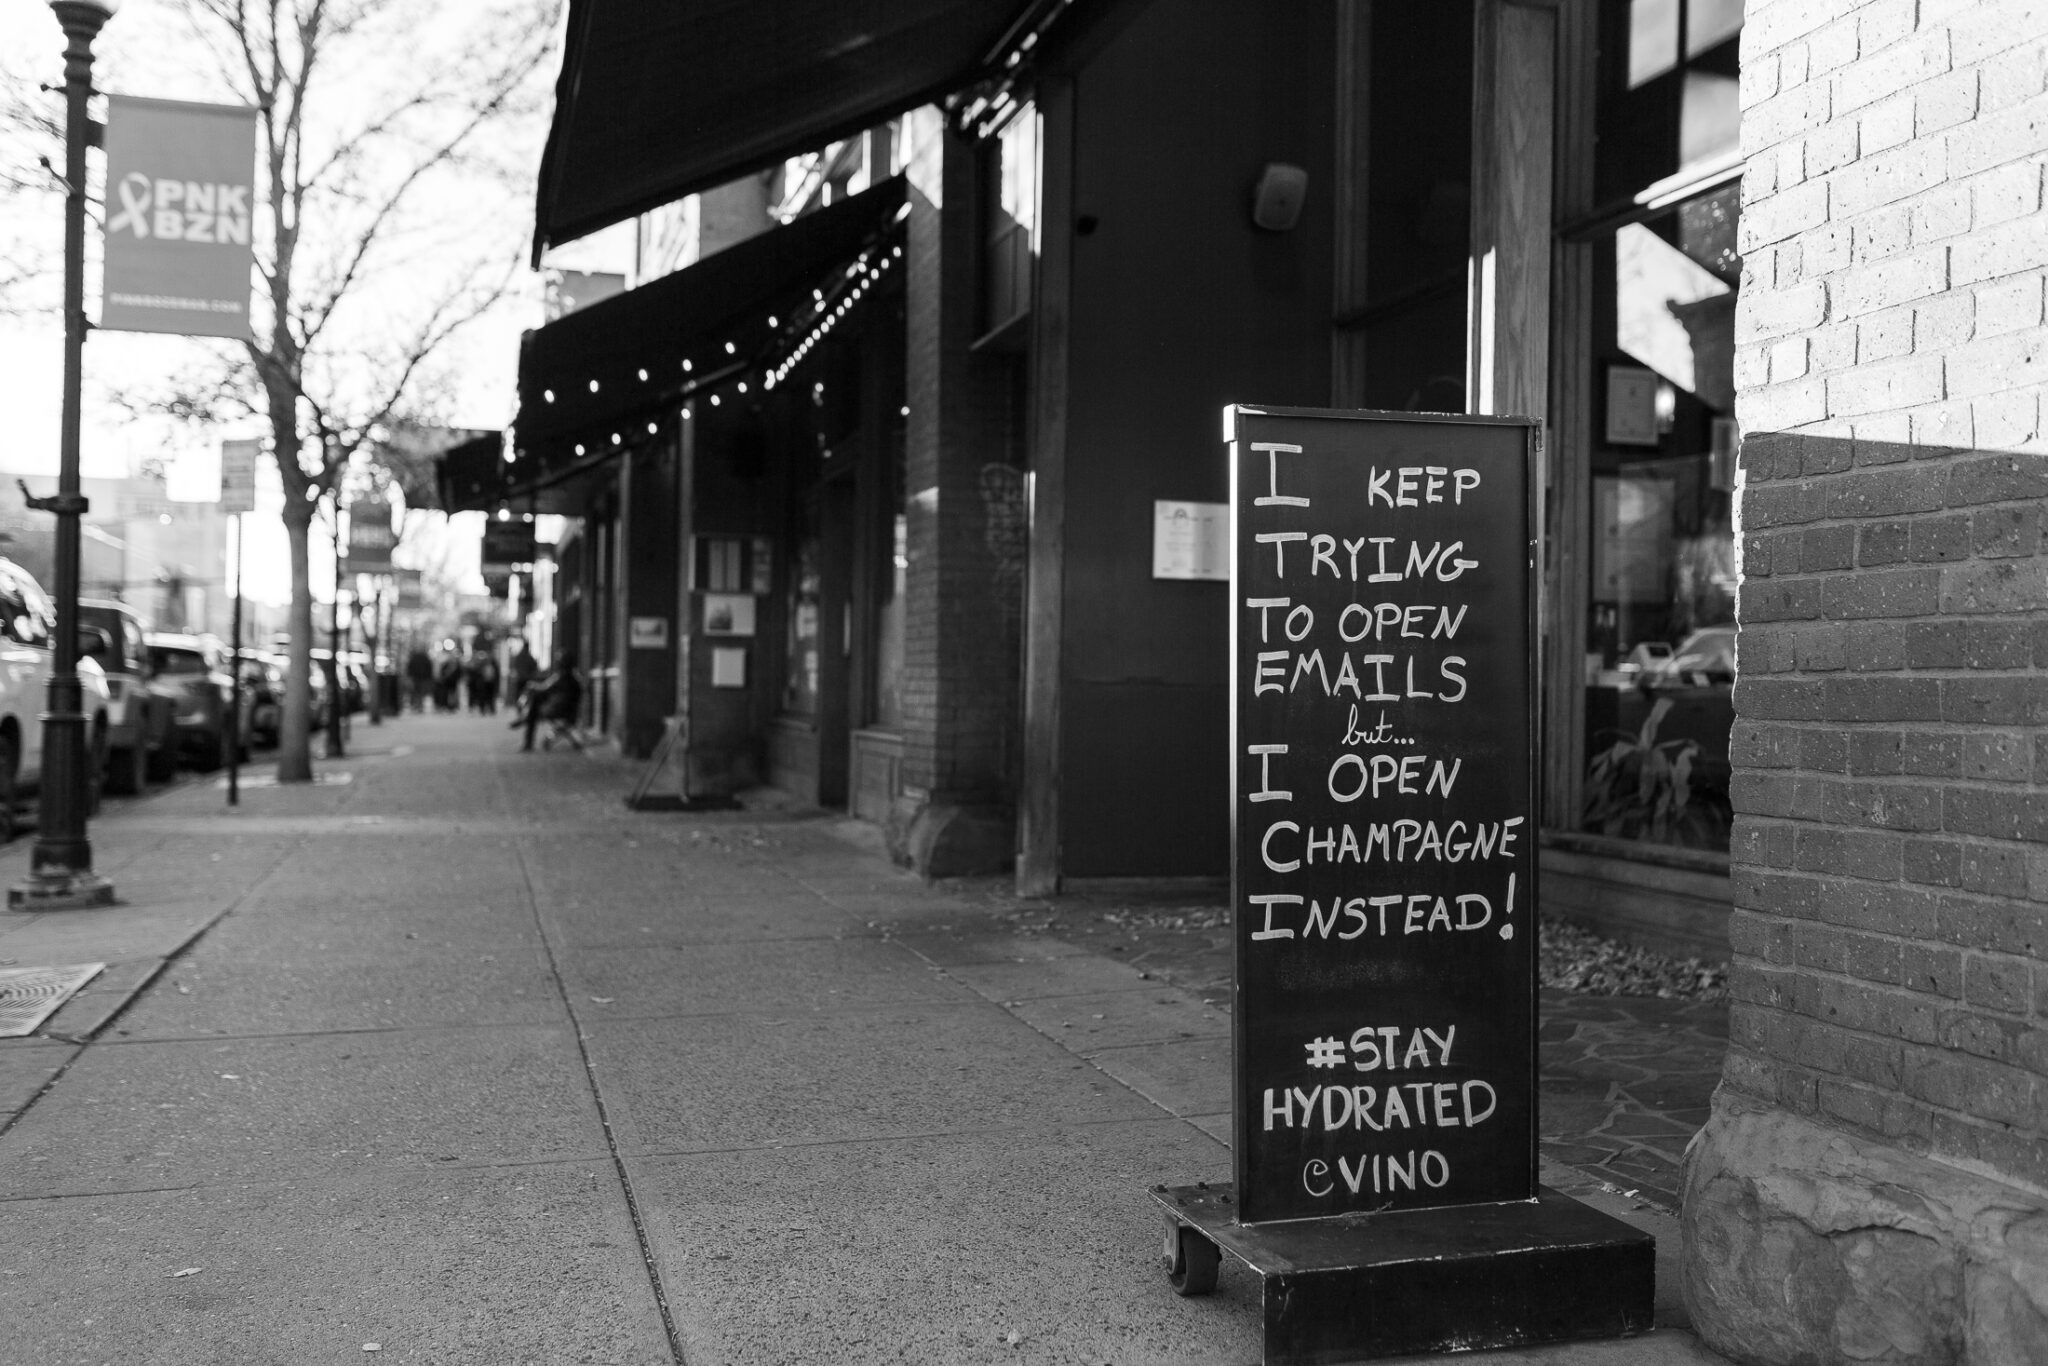 PNK
BZN
I KEEP
TRYING
TO OPEN
EMAILS
but...
I OPEN
CHAMPAGNE
INSTEAD!
#STAY
HYDRATED
@VINO